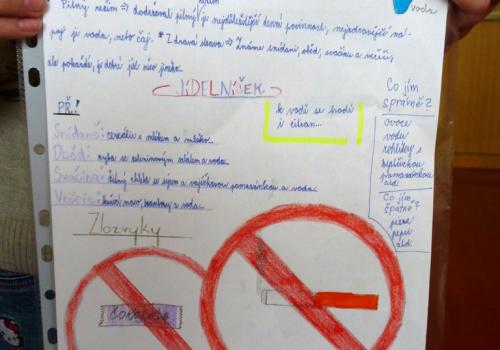 voda
Pitný režim => dodržovat pitný je nejdůležitější denní povinnost, nejzdravější ná-
poj je voda, nebo čaj. * Zdravá strava => Známe snídani, oběd, svačinu a večeři,
ale pokaždé, je dobré jíst něco jiného.
JÍDELNÍČEK
PŘ!
k vodě se hodí
i citron...
Snídaně: cereálie s mlékem a mléko.
Oběd: ryba se zeleninovým salátem a voda.
Svačina: žitný chléb se sýrem a vajíčkovou pomazánkou a voda.
Večeře: kuřecí maso, brambory a voda.
Co jím
správně?
ovoce
vodu
rohlíky s
pomazánkou
atd.
Co jím
špatně?
pizza
pepsi
atd.
Zlozvyky
čokoláda